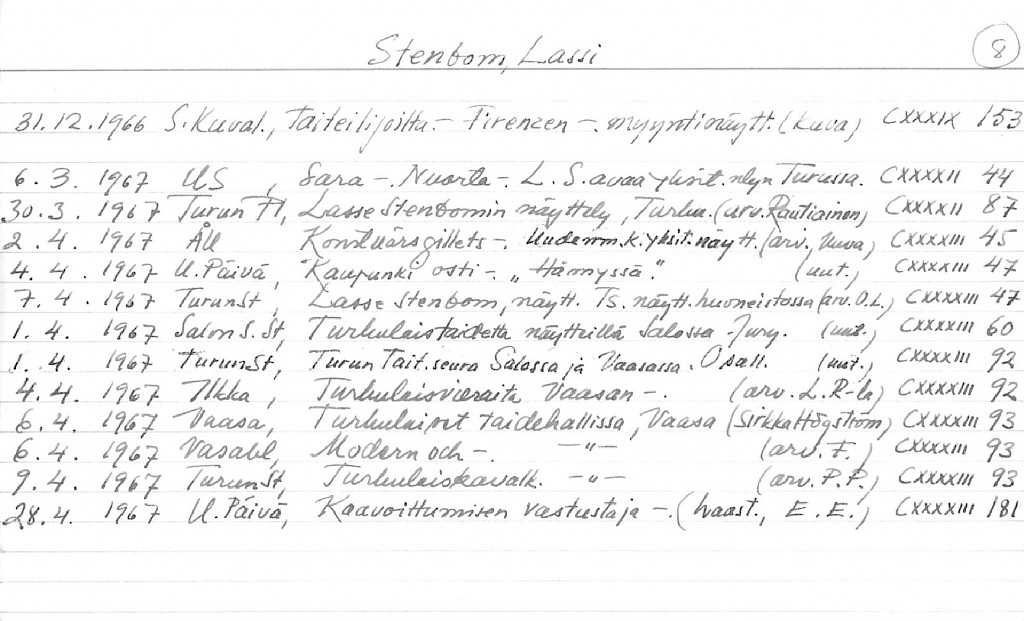 Stenbom, Lassi 8
31.12.1966 S. Kuval., Taiteilijoilta.- Firenzen -. myyntinäytt. (kuva) CXXXIX 153
6. 3. 1967 US, Sara -. Nuorla -. L. S. avaa yksit. nlyn Turussa. CXXXXII 44
30.3. 1967 Turun Pl, Lasse Stenbomin näyttely, Turku. (arv. Rautiainen) CXXXXII 87
2. 4. 1967 ÅU Konstvärsgillets -. Uudenm.k. yksit. näytt. (arv., kuva) CXXXXIII 45
4. 4. 1967 U. Päivä, "Kaupunki osti -. „Hämyssä". (uut.) CXXXXIII 47
7. 4. 1967 TurunSt, Lasse Stenbom, näytt. Ts. näytt. huoneistossa (arv. O.L.) CXXXXIII 47
1. 4. 1967 Salon S. St, Turkulaistaidetta näytteillä Salossa. Jury. (uut.) CXXXXIII 60
1. 4. 1967 TurunSt, Turun Tait. seura Salossa ja Vaasassa. Osall. (uut.) CXXXXIII 92
4.4. 1967 Ilkka, Turkulaisvieraita Vaasan -. (arv. L. R-la) CXXXXIII 92
6.4. 1967 Vaasa, Turkulaiset taidehallissa, Vaasa (Sirkka Högström) CXXXXIII 93
6.4. 1967 Vasabl, Modern och -. -"- (arv. F.) CXXXXIII 93
9.4. 1967 TurunSt, Turkulaiskavalk. -"- (arv. P.P.) CXXXXIII 93
28.4. 1967 U. Päivä, Kaavoittumisen vastustaja -. (haast., E. E.) CXXXXIII 181